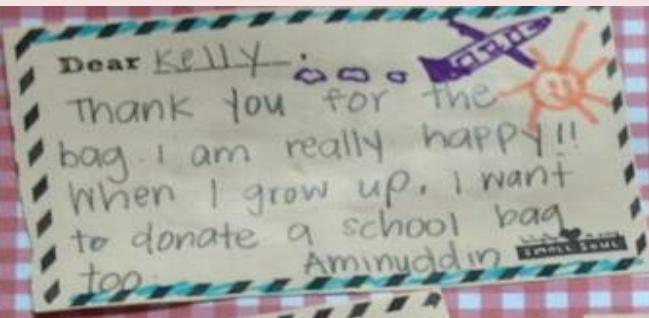 Dear Kelly
Thank you for the
bag. I am really happy!!
When I grow up, I want
to donate a school bag
too. Aminuddin
SMALL SOUL